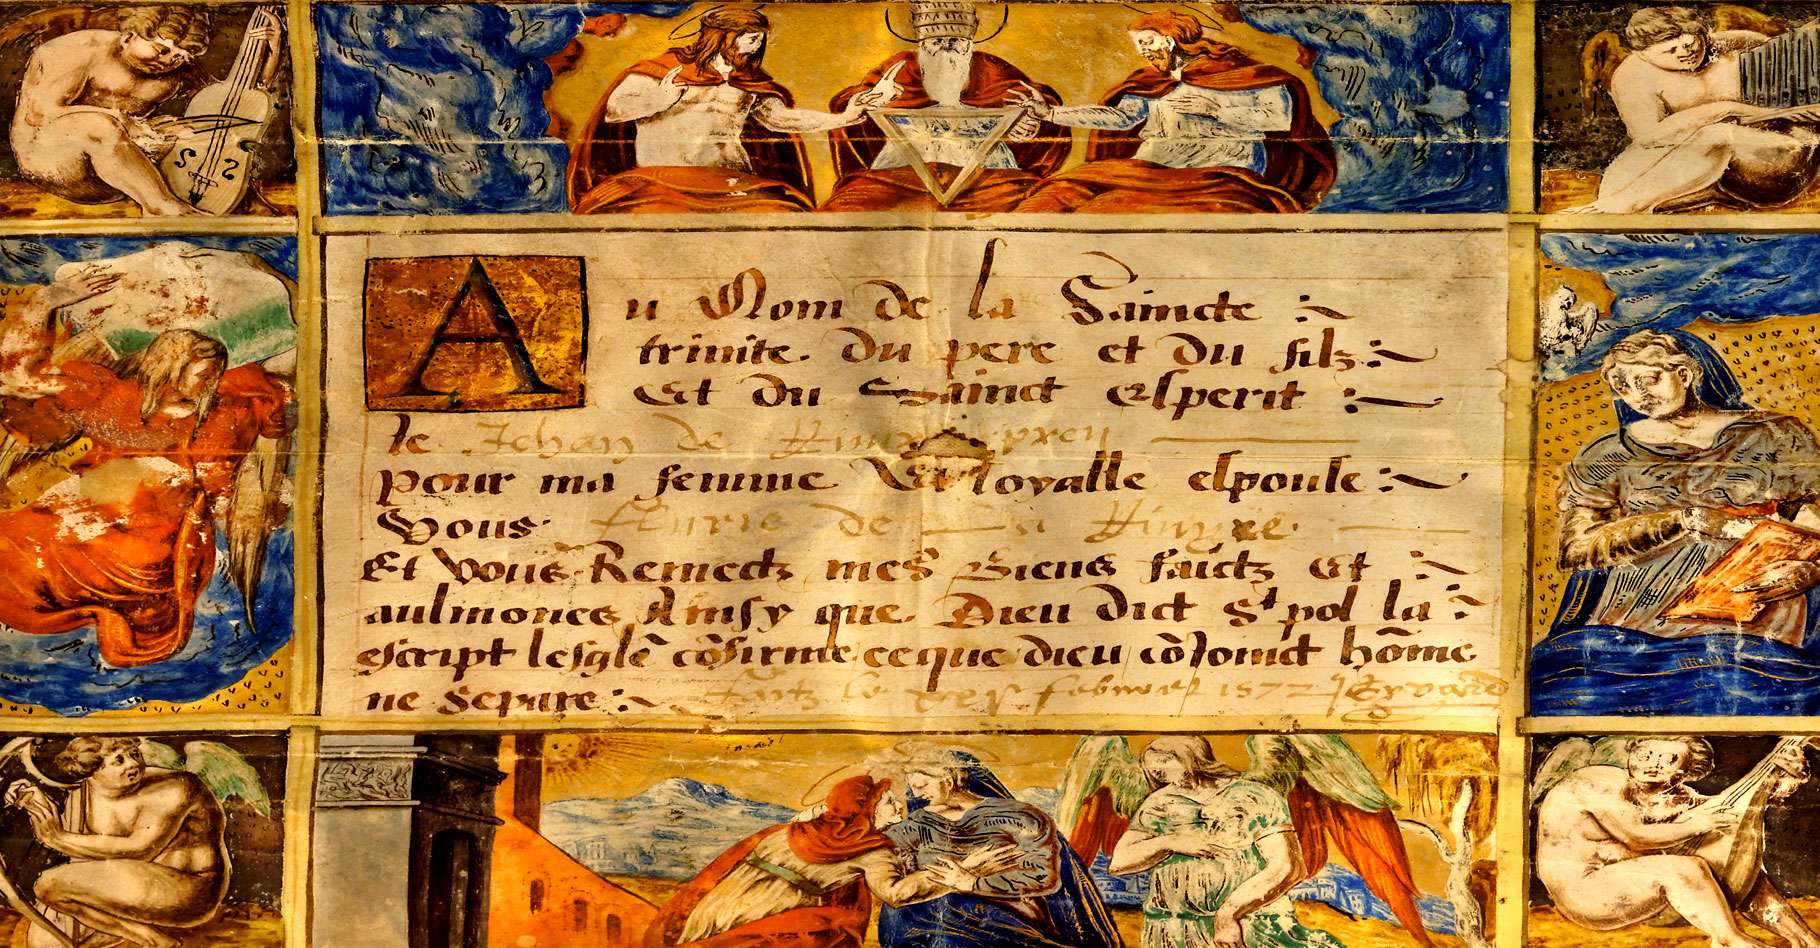 Au Nom de la Saincte
trinite. du pere et du filz
Et du Sainct esperit
Ie Jehan de
pour ma femme Et loyalle espouse
Vous de
Et vous Remectz mes biens faictz et
aulmones Ainsy que Dieu dict St pol la
escript lesglē cōfirme ce que dieu cōJoinct hōme
ne Separe faict le febvrier 1572